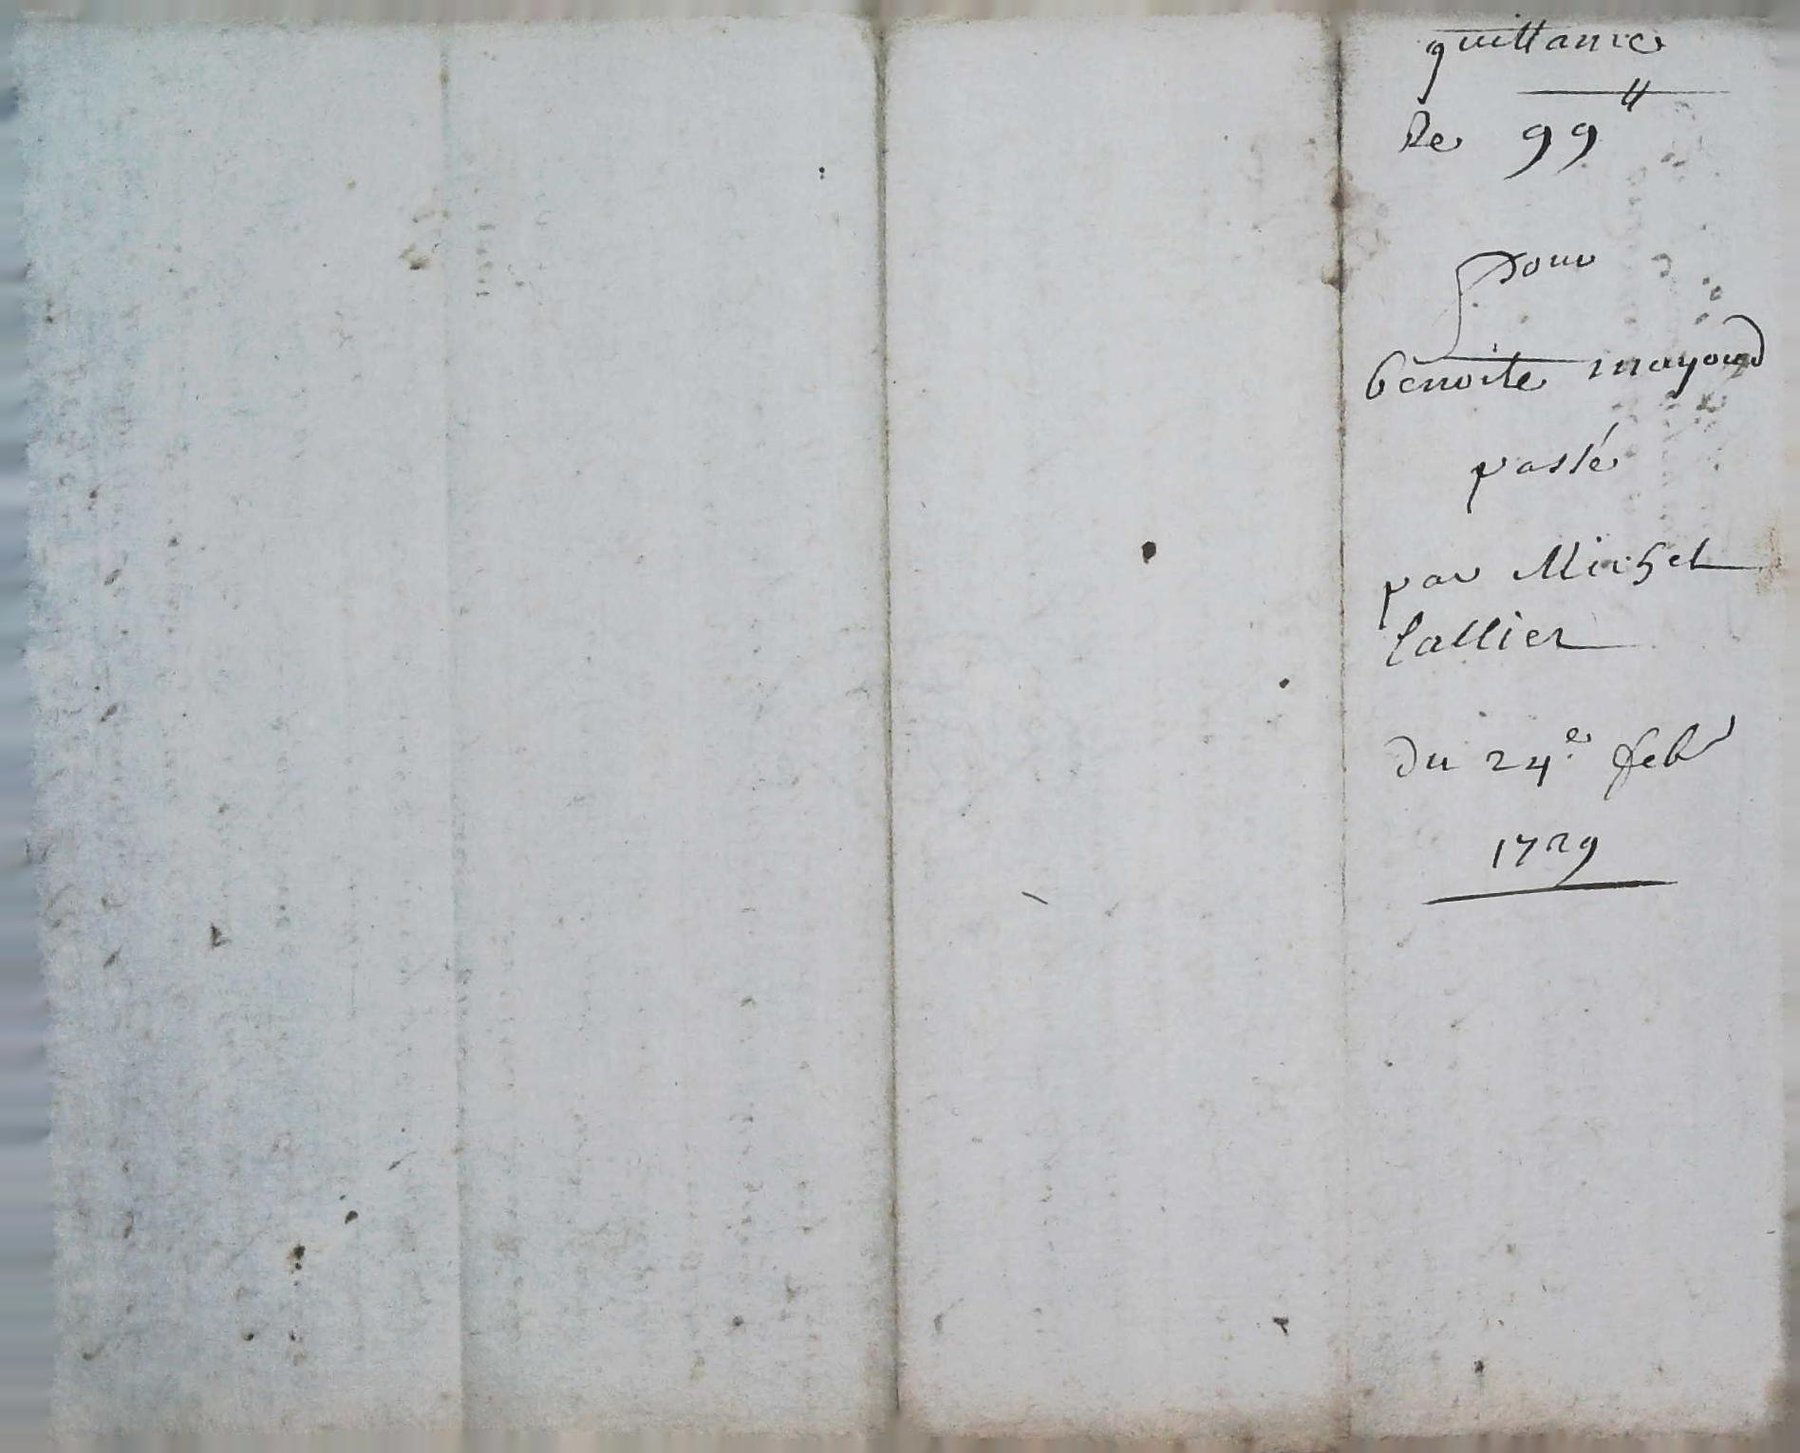 quittance
de 99 ₶
pour
benoite mayoud
passé
par Michel
Lallier
du 24e feb
1729